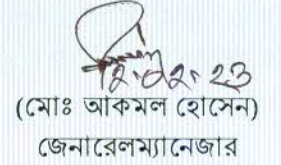 (মোঃ আকমল হোসেন)
জেনারেলম্যানেজার